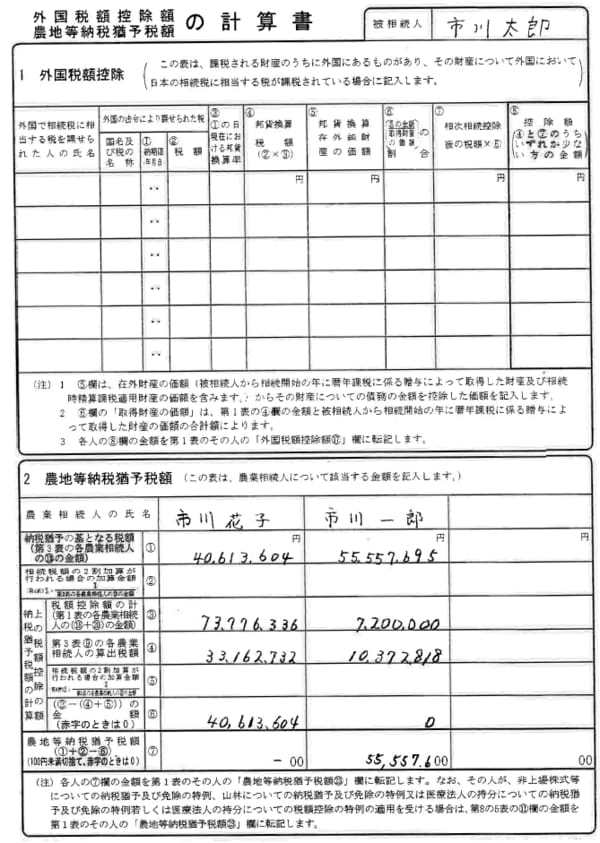 外国税額控除額
農地等納税猶予税額
の計算書
被相続人
市川太郎
1 外国税額控除
この表は、課税される財産のうちに外国にあるものがあり、その財産について外国において
日本の相続税に相当する税が課税されている場合に記入します。
外国で相続税に相
当する税を課せら
れた人の氏名
外国の法令により課せられた税
国名及
び税の
名称
①
納期限
年月日
②
税額
③
①の日
現在にお
ける邦貨
換算率
④
邦貨換算
税額
(②×③)
⑤
邦貨換算
在外純財
産の価額
⑥
⑤の金額
取得財産
の価額
の
割合
⑦
相次相続控除
後の税額×⑥
⑧
控除額
④と⑦のうち
いずれか少な
い方の金額
円
円
円
円
(注) 1 ⑤欄は、在外財産の価額(被相続人から相続開始の年に暦年課税に係る贈与によって取得した財産及び相続
時精算課税適用財産の価額を含みます。)からその財産についての債務の金額を控除した価額を記入します。
2 ⑥欄の「取得財産の価額」は、第1表の④欄の金額と被相続人から相続開始の年に暦年課税に係る贈与によ
って取得した財産の価額の合計額によります。
3 各人の⑧欄の金額を第1表のその人の「外国税額控除額⑰」欄に転記します。
2 農地等納税猶予税額 (この表は、農業相続人について該当する金額を記入します。)
農業相続人の氏名
市川花子
市川一郎
納税猶予の基となる税額
(第3表の各農業相続人
の⑬の金額)
①
円
40,613,604
円
55,557,695
円
相続税額の2割加算が
行われる場合の加算金額
②
納税猶予税額の計算上の税額控除額
税額控除額の計
(第1表の各農業相続
人の
の金額)
③
73,776,336
7,200,000
第3表⑨の各農業
相続人の算出税額
④
33,162,732
10,372,818
相続税額の2割加算が
行われる場合の加算金額
⑤
(③-(④+⑤))の
金額
(赤字のときは0)
⑥
40,613,604
0
農地等納税猶予税額
(①+②-⑥)
(100円未満切捨て、赤字のときは0)
⑦
- 00
55,557,600
00
(注) 各人の⑦欄の金額を第1表のその人の「農地等納税猶予税額㉓」欄に転記します。なお、その人が、非上場株式等
についての納税猶予及び免除の特例、山林についての納税猶予及び免除の特例又は医療法人の持分についての納税猶
予及び免除の特例若しくは医療法人の持分についての税額控除の特例の適用を受ける場合は、第8の5表の⑪欄の金額を
第1表のその人の「農地等納税猶予税額㉓」欄に転記します。